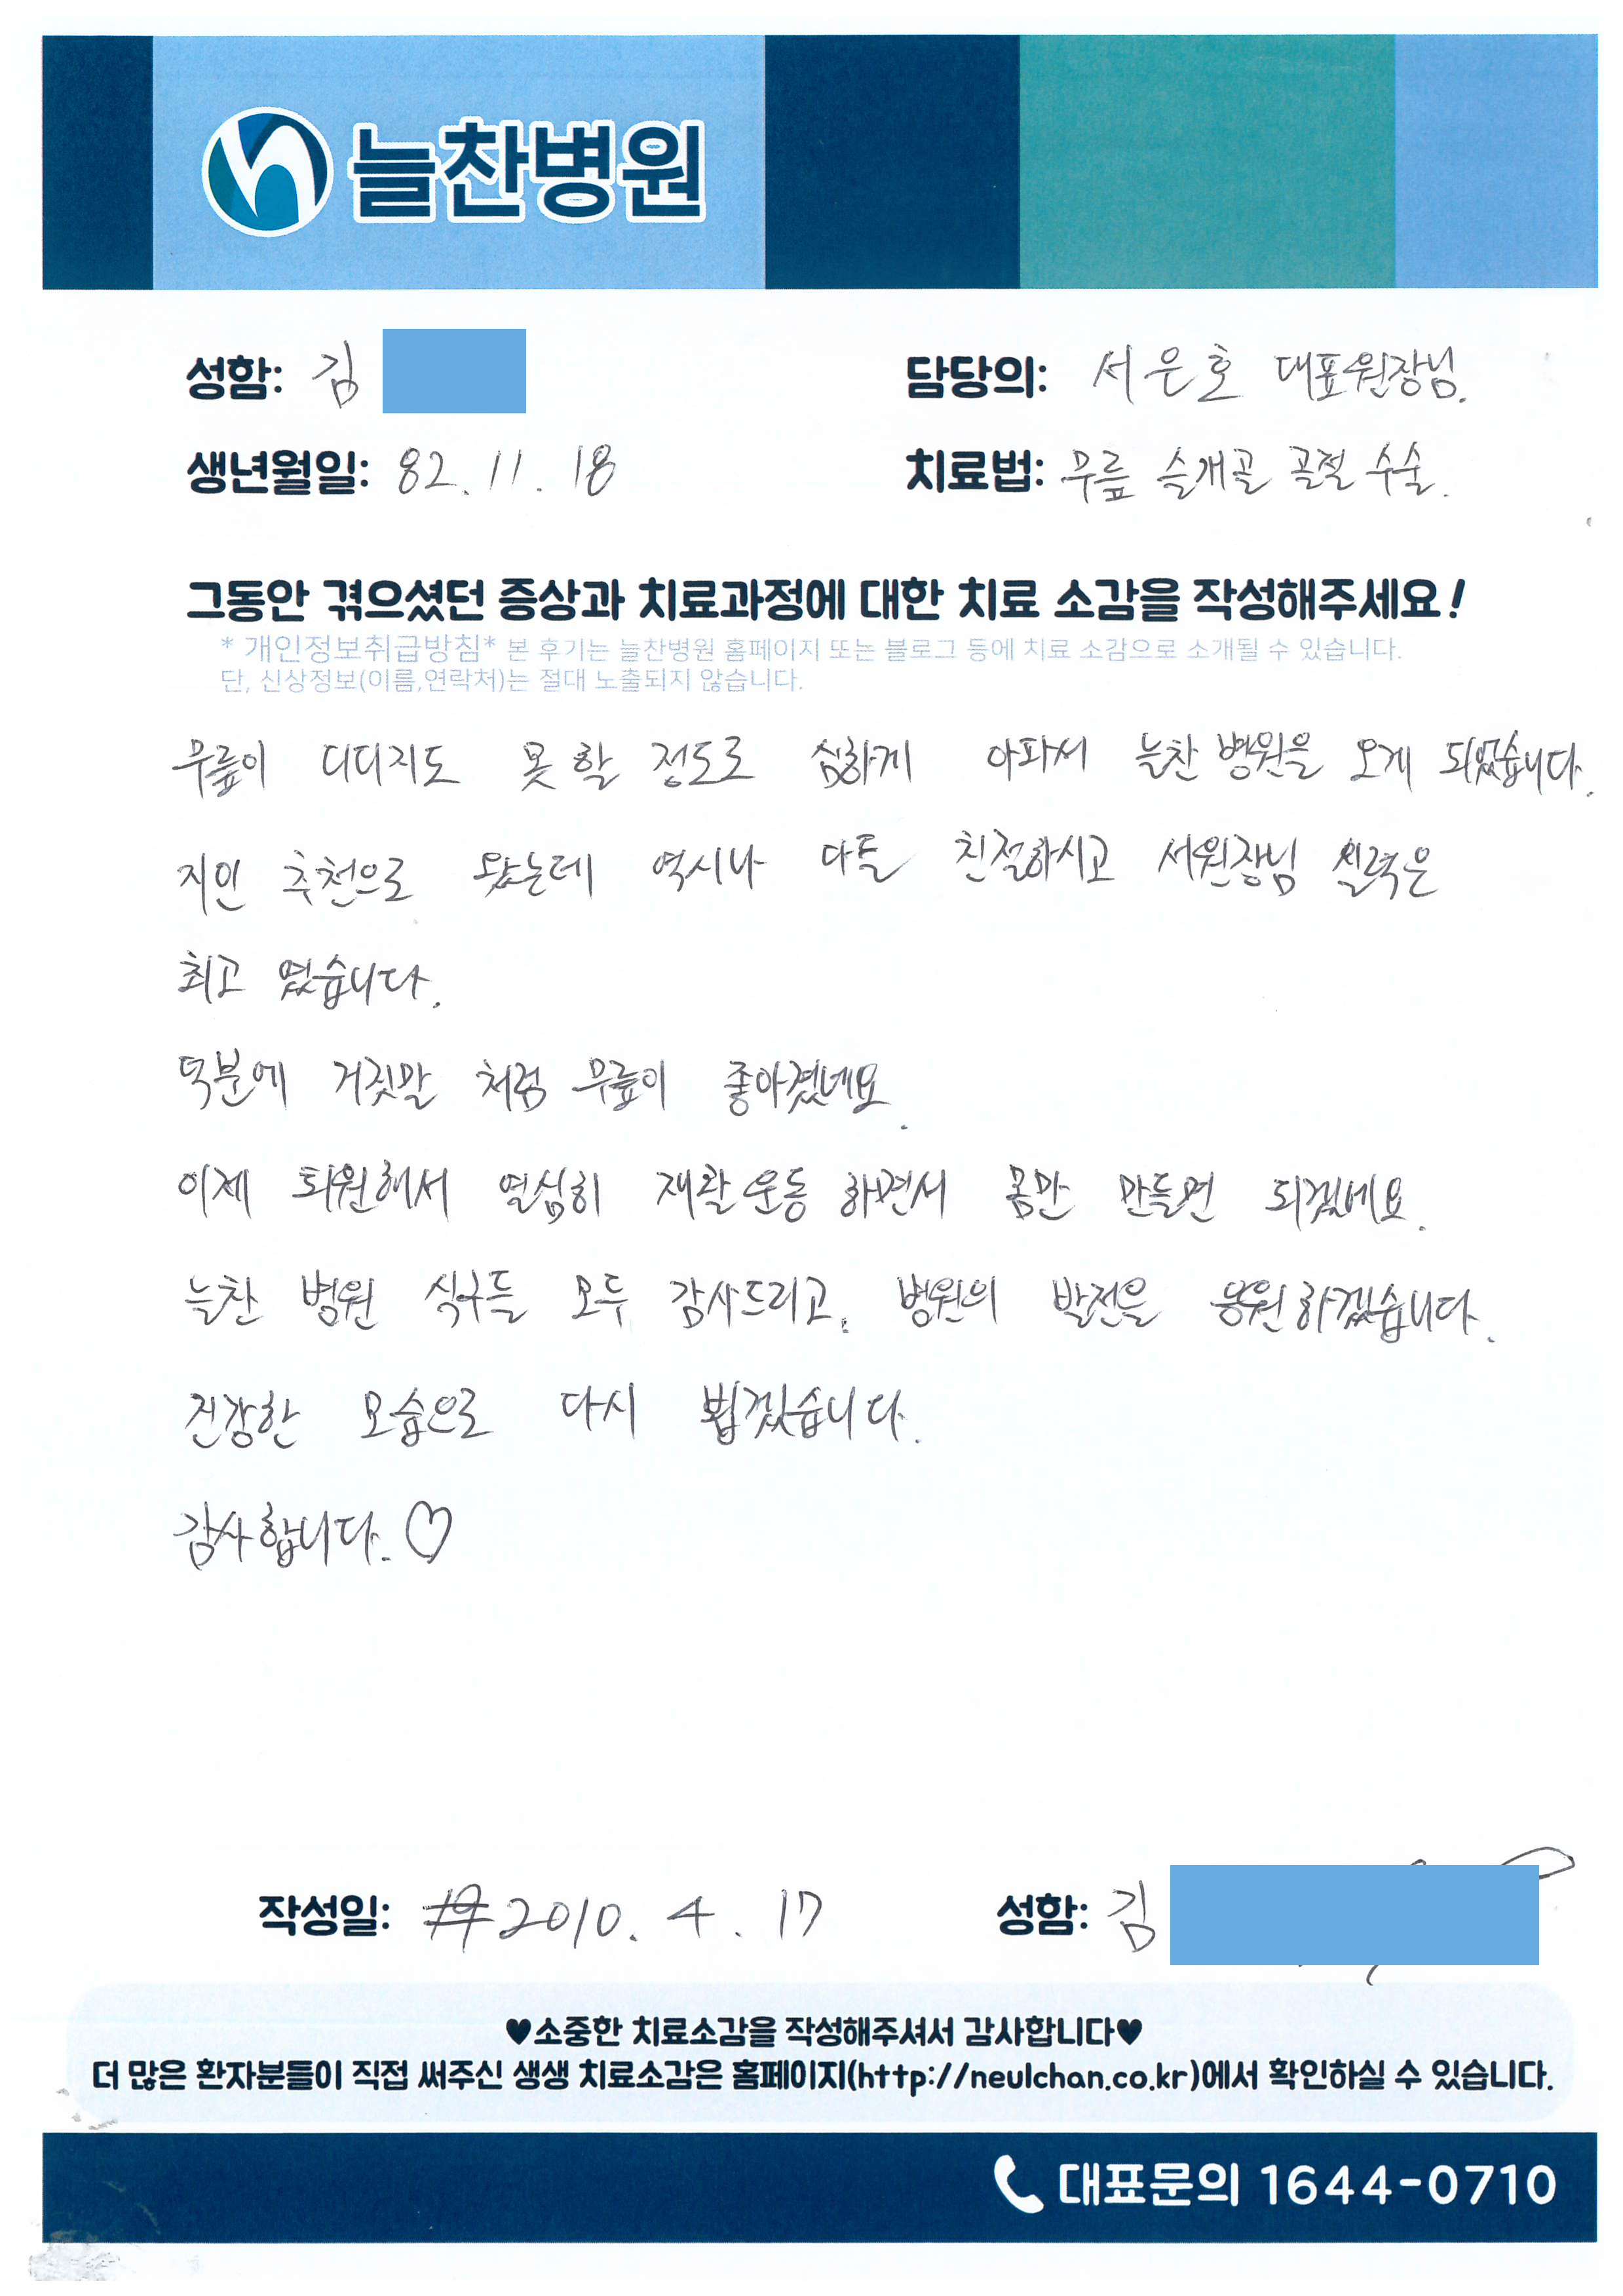 늘찬병원
성함: 김
담당의: 서은호 대표원장님.
생년월일: 82. 11. 18
치료법: 무릎 슬개골 골절 수술.
그동안 겪으셨던 증상과 치료과정에 대한 치료 소감을 작성해주세요!
* 개인정보취급방침* 본 후기는 늘찬병원 홈페이지 또는 블로그 등에 치료 소감으로 소개될 수 있습니다.
단, 신상정보(이름,연락처)는 절대 노출되지 않습니다.
무릎이 디디지도 못 할 정도로 심하게 아파서 늘찬 병원을 오게 되었습니다.
지인 추천으로 왔는데 역시나 다들 친절하시고 서원장님 실력은
최고 였습니다.
덕분에 거짓말 처럼 무릎이 좋아졌네요.
이제 퇴원해서 열심히 재활 운동 하면서 몸만 만들면 되겠네요.
늘찬 병원 식구들 모두 감사드리고, 병원의 발전을 응원하겠습니다.
건강한 모습으로 다시 뵙겠습니다.
감사합니다. ♡
작성일: 2010. 4. 17
성함: 김
♥소중한 치료소감을 작성해주셔서 감사합니다♥
더 많은 환자분들이 직접 써주신 생생 치료소감은 홈페이지(http://neulchan.co.kr)에서 확인하실 수 있습니다.
대표문의 1644-0710